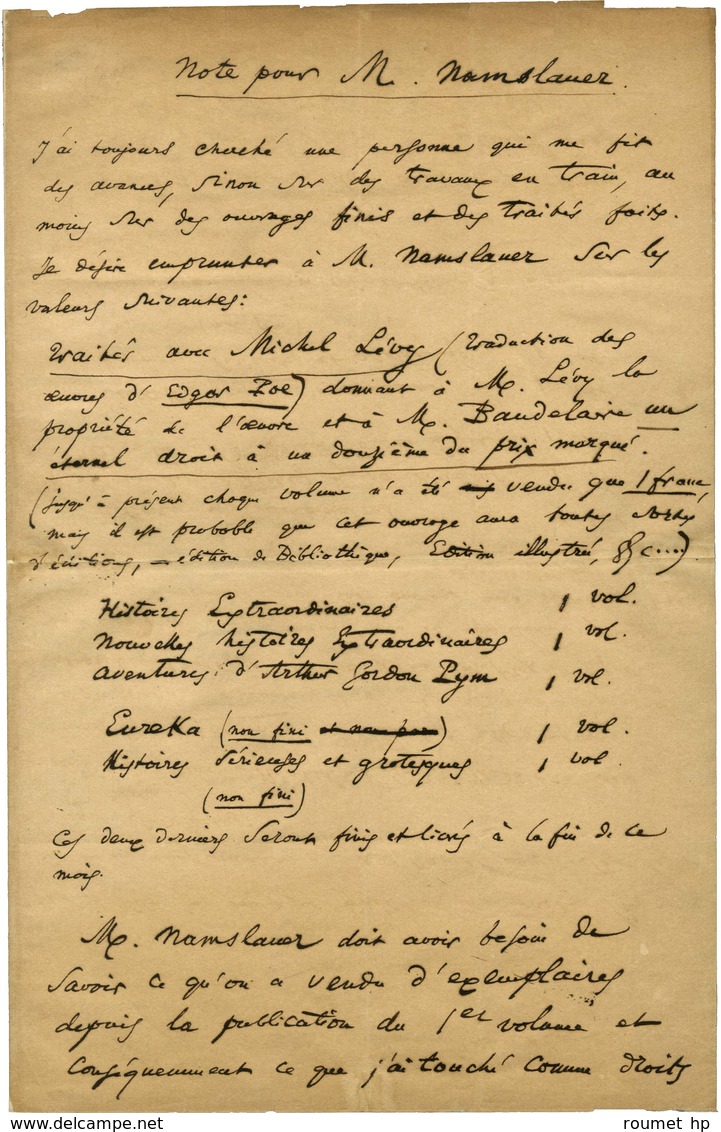 Note pour M. Namslauer.
J'ai toujours cherché une personne qui me fit
des avances, sinon sur des travaux en train, au
moins sur des ouvrages finis et des traités faits.
Je désire emprunter à M. Namslauer sur les
valeurs suivantes:
traités avec Michel Lévy (traduction des
œuvres d'Edgar Poe) donnant à M. Lévy la
propriété de l'œuvre et à M. Baudelaire un
éternel droit à un douzième du prix marqué.
(jusqu'à présent chaque volume n'a été vendu que 1 franc,
mais il est probable que cet ouvrage aura toutes sortes
d'éditions, — édition de Bibliothèque, Edition illustrée, &c....)
Histoires Extraordinaires 1 vol.
Nouvelles histoires Extraordinaires 1 vol.
Aventures d'Arthur Gordon Pym 1 vol.
EureKa (non fini et non par) 1 vol.
Histoires Sérieuses et grotesques 1 vol
(non fini)
Ces deux derniers seront finis et livrés à la fin de ce
mois.
M. Namslauer doit avoir besoin de
savoir ce qu'on a vendu d'exemplaires
depuis la publication du 1er volume et
conséquemment ce que j'ai touché comme droits
roumet hp